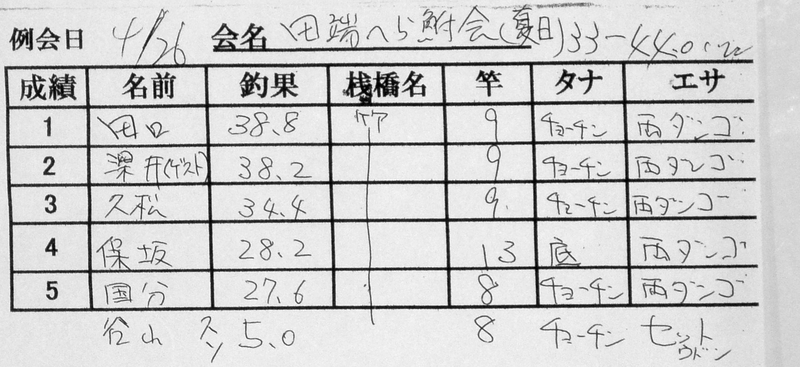 例会日 4/26 会名 田端へら鮒会(夏日)33-44.0
成績 名前 釣果 桟橋名 竿 タナ エサ
1 田口 38.8 竹 9 チョーチン 両ダンゴ
2 深井(ゲスト) 38.2 9 チョーチン 両ダンゴ
3 久松 34.4 9 チョーチン 両ダンゴ
4 保坂 28.2 13 底 両ダンゴ
5 国分 27.6 8 チョーチン 両ダンゴ
谷山 スソ 5.0 8 チョーチン セット
ウドン